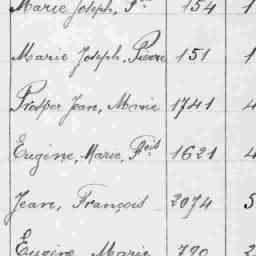 Marie Joseph, 154 1
Marie Joseph, Pierre 151 1
Prosper Jean, Marie 1741 4
Eugène, Marie, 1621 4
Jean, François 2074 5
Eugène Marie 790 2